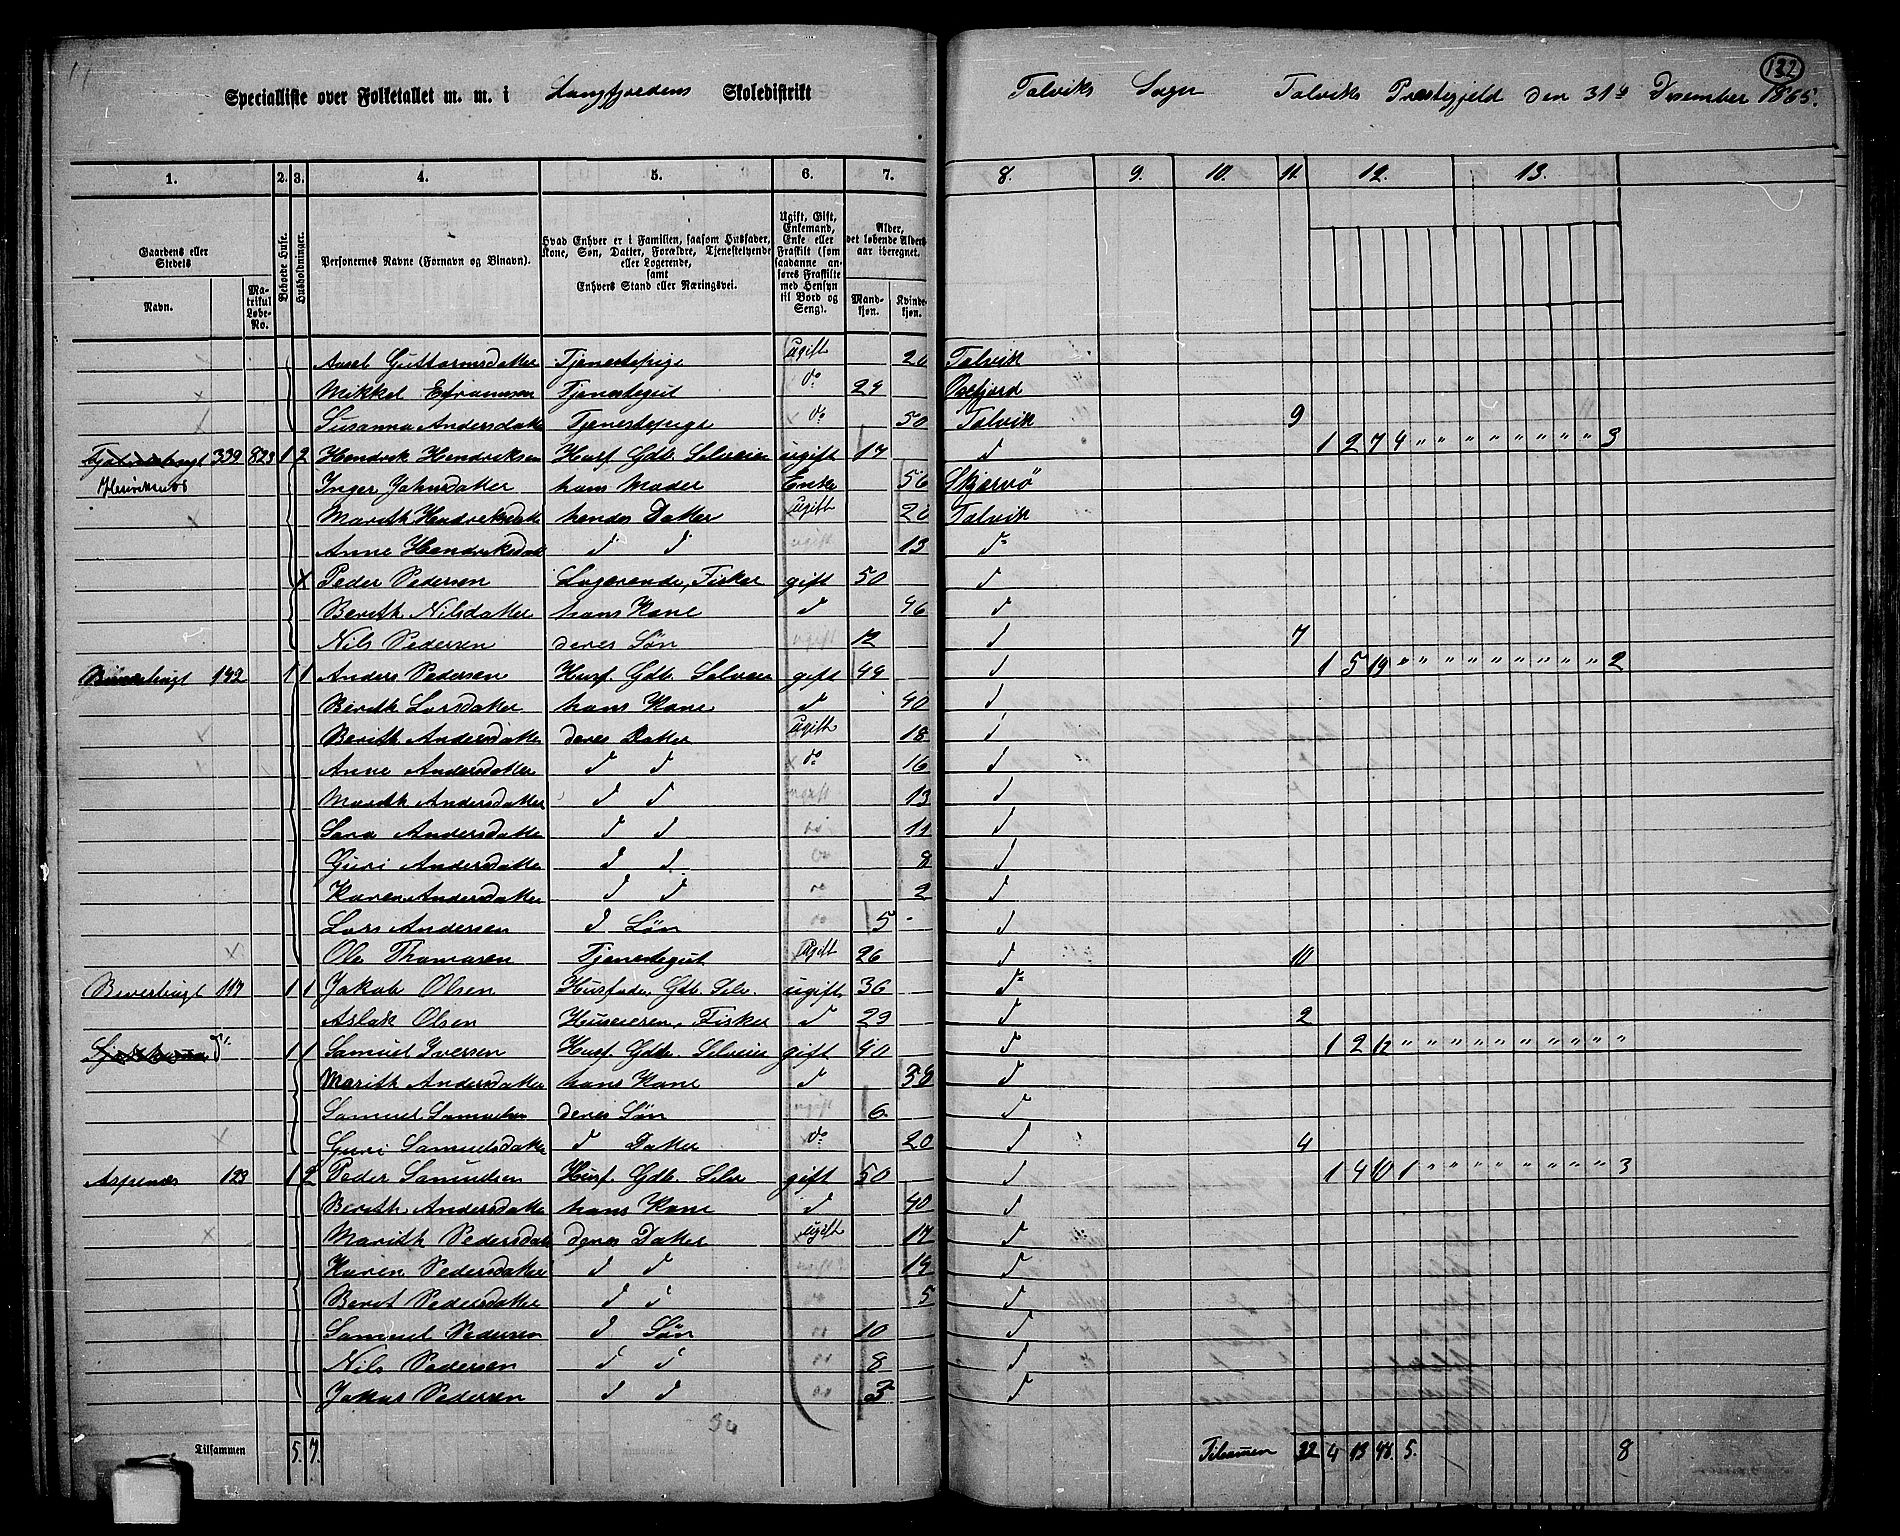 132
Specialliste over Folketallet m. m. i Langfjordens Skoledistrikt Talviks Sogn Talviks Præstegjeld den 31te Desember 1865.
1. 2. 3. 4. 5. 6. 7. 8. 9. 10. 11. 12. 13.
Gaardens eller Stedets
Navn.
Matrikul Løbe-No.
Beboede Huse.
Husholdninger.
Personernes Navne (Fornavn og Binavn).
Hvad Enhver er i Familien, saasom Husfader, Kone, Søn, Datter, Forældre, Tjenestetyende eller Logerende, samt Enhvers Stand eller Næringsvei.
Ugift, Gift, Enkemand, Enke eller Fraskilt (som saadanne anføres Fraskilte med Hensyn til Bord og Seng).
Alder, det løbende Alders-aar iberegnet.
Mand-kjøn.
Kvinde-kjøn.
Guttormsdatter Tjenestepige ugift 20 Talvik
Mikkel Tjenestegut do 24 Oxfjord
Susanna Andersdatter Tjenestepige do 50 Talvik 9
339 823 1 2 Hendrik Hendriksen Husf. Gdb. Selveier ugift 17 d 1 2 7 4 " " " " " " " " " 3
Inger Johnsdatter hans Moder Enke 56 Skjervö
Marith Hendriksdatter hendes Datter ugift 20 Talvik
Anne Hendriksdat d d ugift 13 d
x Peder Pedersen Logerende, Fisker gift 50 d
Berith Nilsdatter hans Kone d 46 d
Nils Pedersen deres Søn ugift 12 d 7
142 1 1 Anders Pedersen Husf. Gdb. Selveier gift 44 d 1 5 19 " " " " " " " " " " 2
Berith Larsdatter hans Kone d 40 d
Berith Andersdatter deres Datter ugift 18 d
Anne Andersdatter d d do 16 d
Marith Andersdatter d d ugift 13 d
Sara Andersdatter d d do 11 d
Guri Andersdatter d d do 8 d
Karen Andersdatter d d do 2 d
Lars Andersen d Søn do 5 d
Ole Thomasen Tjenestegut ugift 26 d 10
Beverbugt 117 1 1 Jakob Olsen Husfader Gdb. Selv. ugift 36 d
Aslak Olsen Fisker d 29 d 2
d 1 1 Samuel Iversen Husf. Gdb. Selveier gift 40 d 1 2 12 " " " " " " " " " " "
Marith Andersdatter hans Kone d 38 d
Samuel Samuelsen deres Søn ugift 6 d
Guri Samuelsdatter d Datter do 20 d 4
Aspenæs 123 1 2 Peder Samuelsen Husf. Gdb. Selv gift 50 d 1 4 10 1 " " " " " " " " " 3
Berith Andersdatter hans Kone d 40 d
Marith Pedersdatter deres Datter ugift 17 d
Karen Pedersdatter d d ugift 14 d
Berit Pedersdatter d d do 5 d
Samuel Pedersen d Søn do 10 d
Nils Pedersen d d do 8 d
Pedersen d d do 3 d
Tilsammen 5. 7. Tilsamen 32 4 13 48. 5. 8